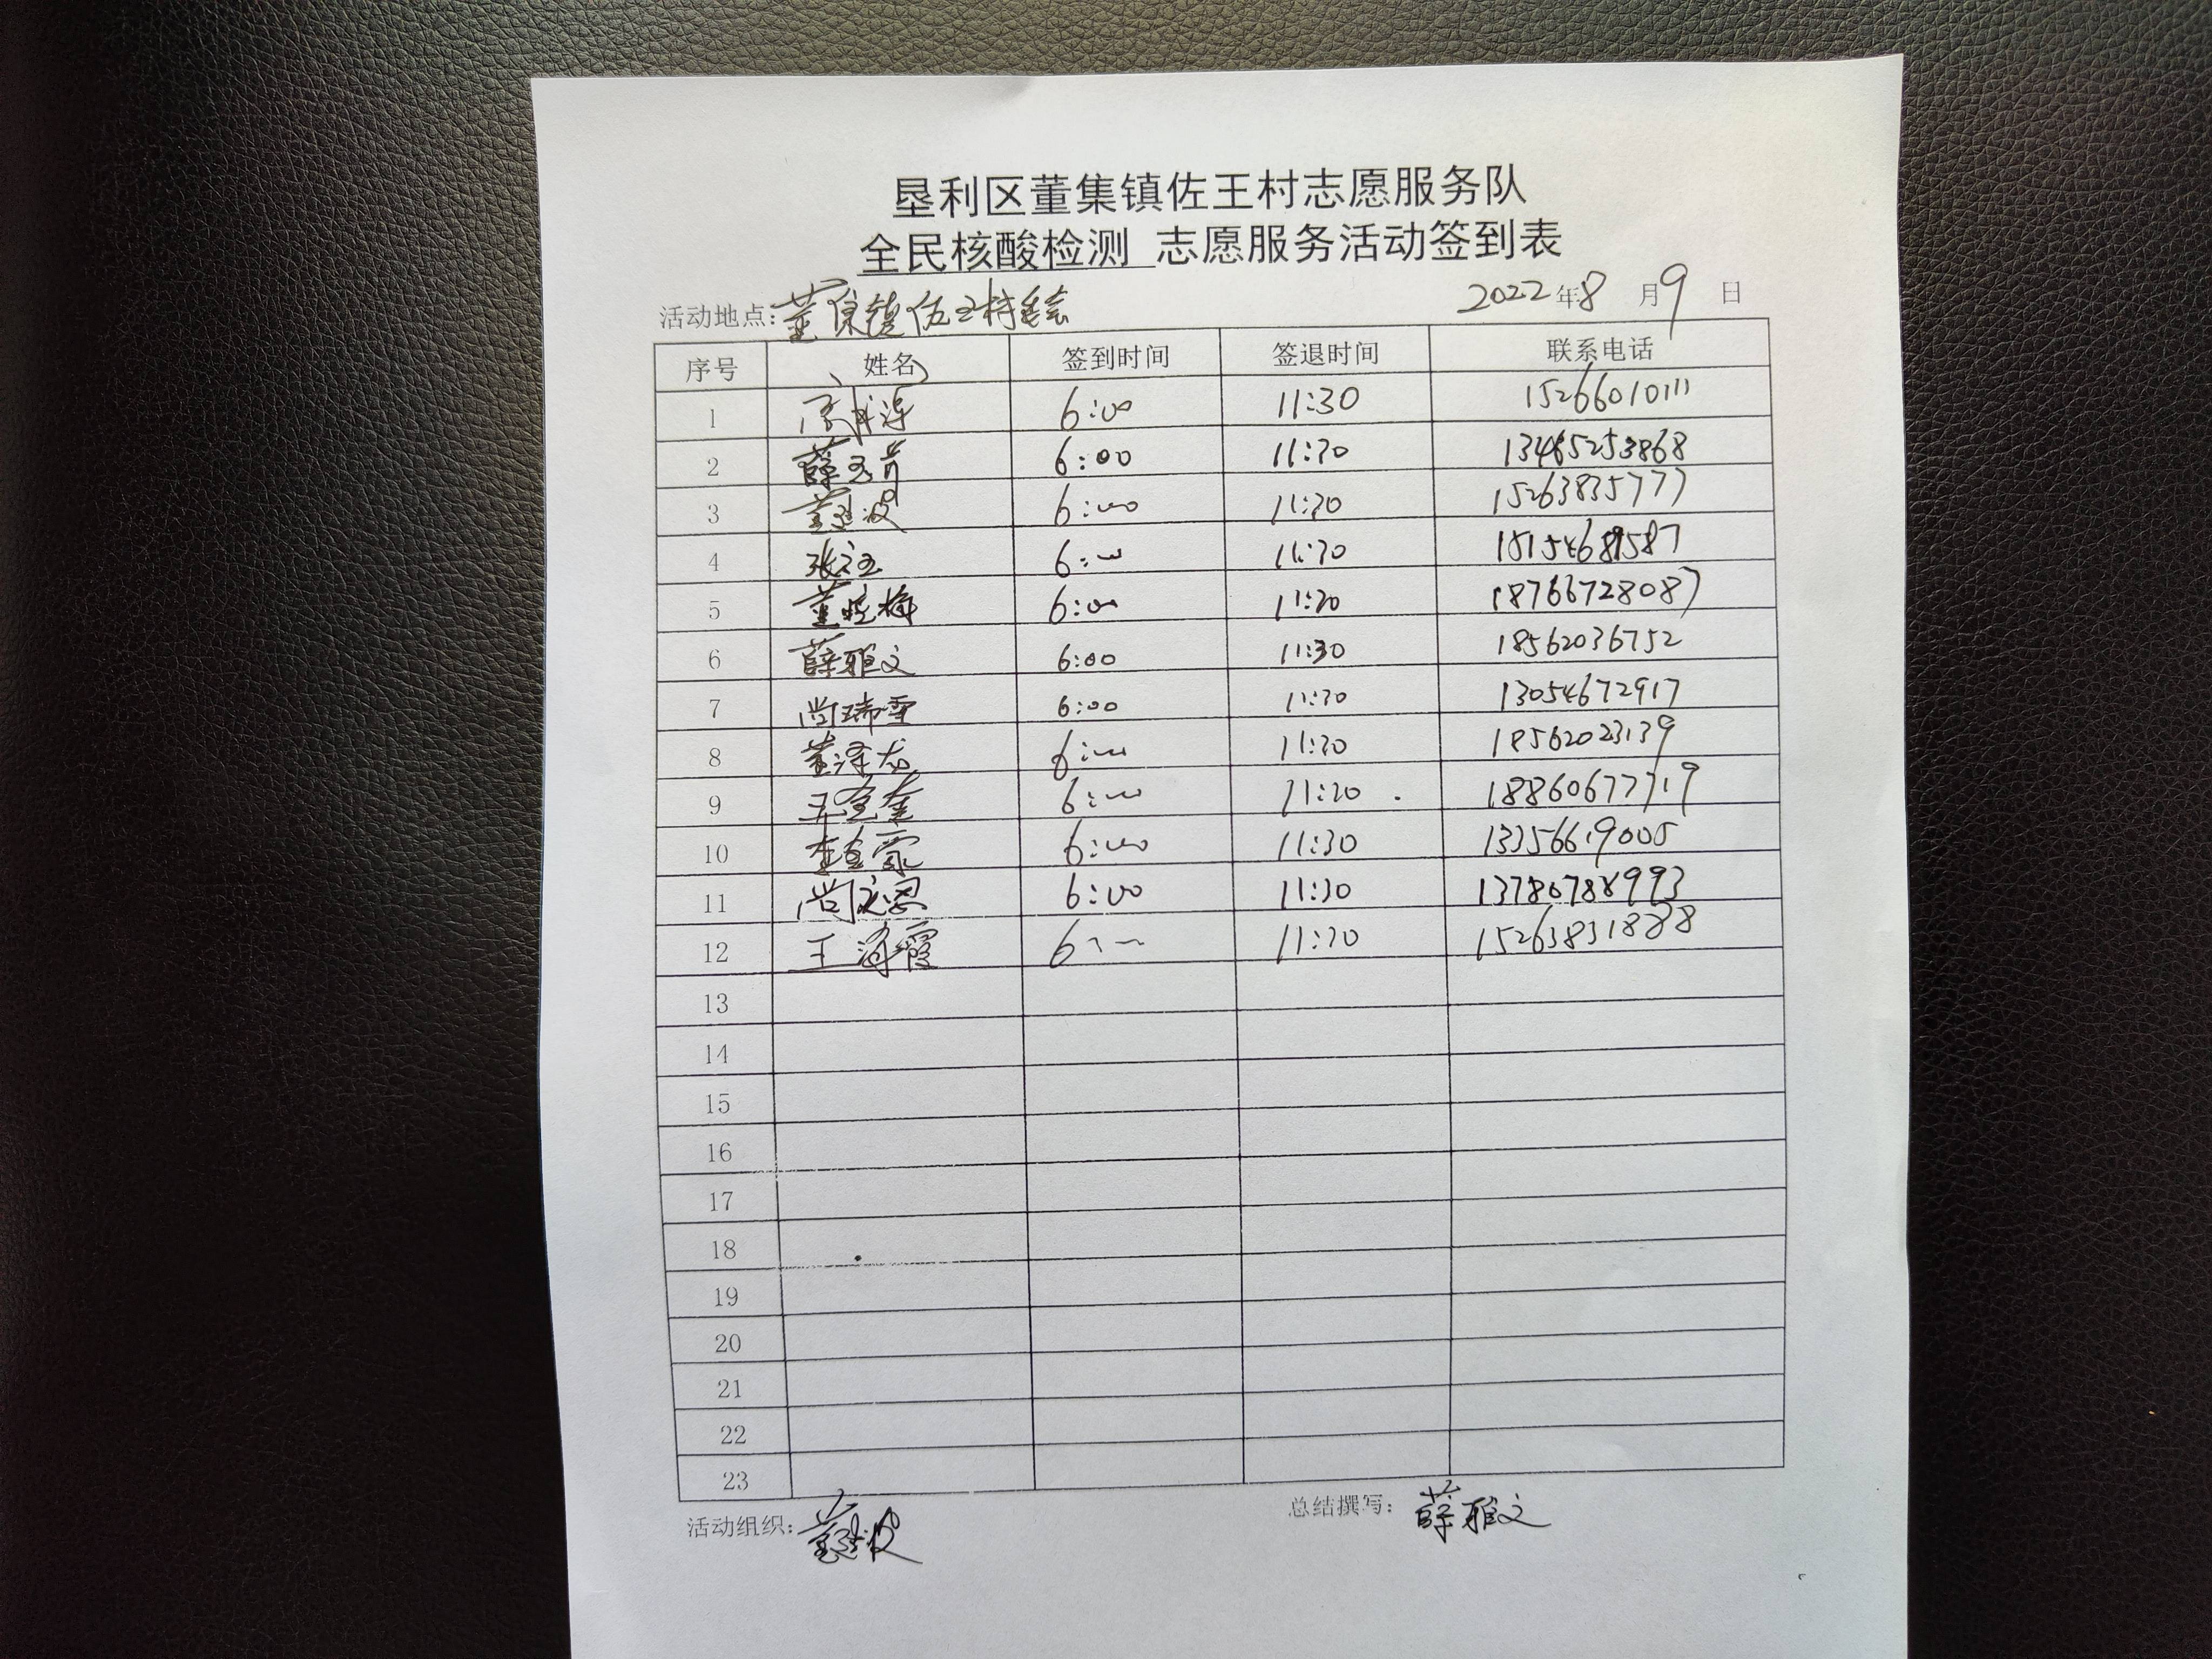 垦利区董集镇佐王村志愿服务队
全民核酸检测 志愿服务活动签到表
活动地点: 董集镇佐王村 2022年8月9日
序号 姓名 签到时间 签退时间 联系电话
1 6:00 11:30 15266010111
2 薛 6:00 11:30 13465253868
3 董建波 6:00 11:30 15263835777
4 张 6:00 11:30
5 董晓梅 6:00 11:30 18766728087
6 薛雅文 6:00 11:30 18562036752
7 尚瑞雪 6:00 11:30 13054672917
8 董泽龙 6:00 11:30 18562023139
9 王 6:00 11:30 18860677719
10 李 6:00 11:30 13356619005
11 尚 6:00 11:30 13780788993
12 王海霞 6:00 11:30 15263831888
13
14
15
16
17
18
19
20
21
22
23
活动组织: 董建波 总结撰写: 薛雅文